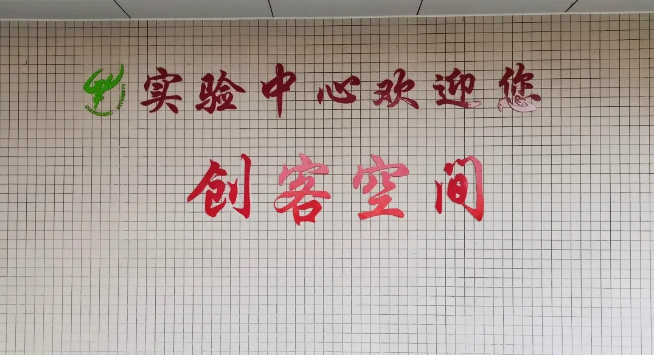 实验中心欢迎您
创客空间